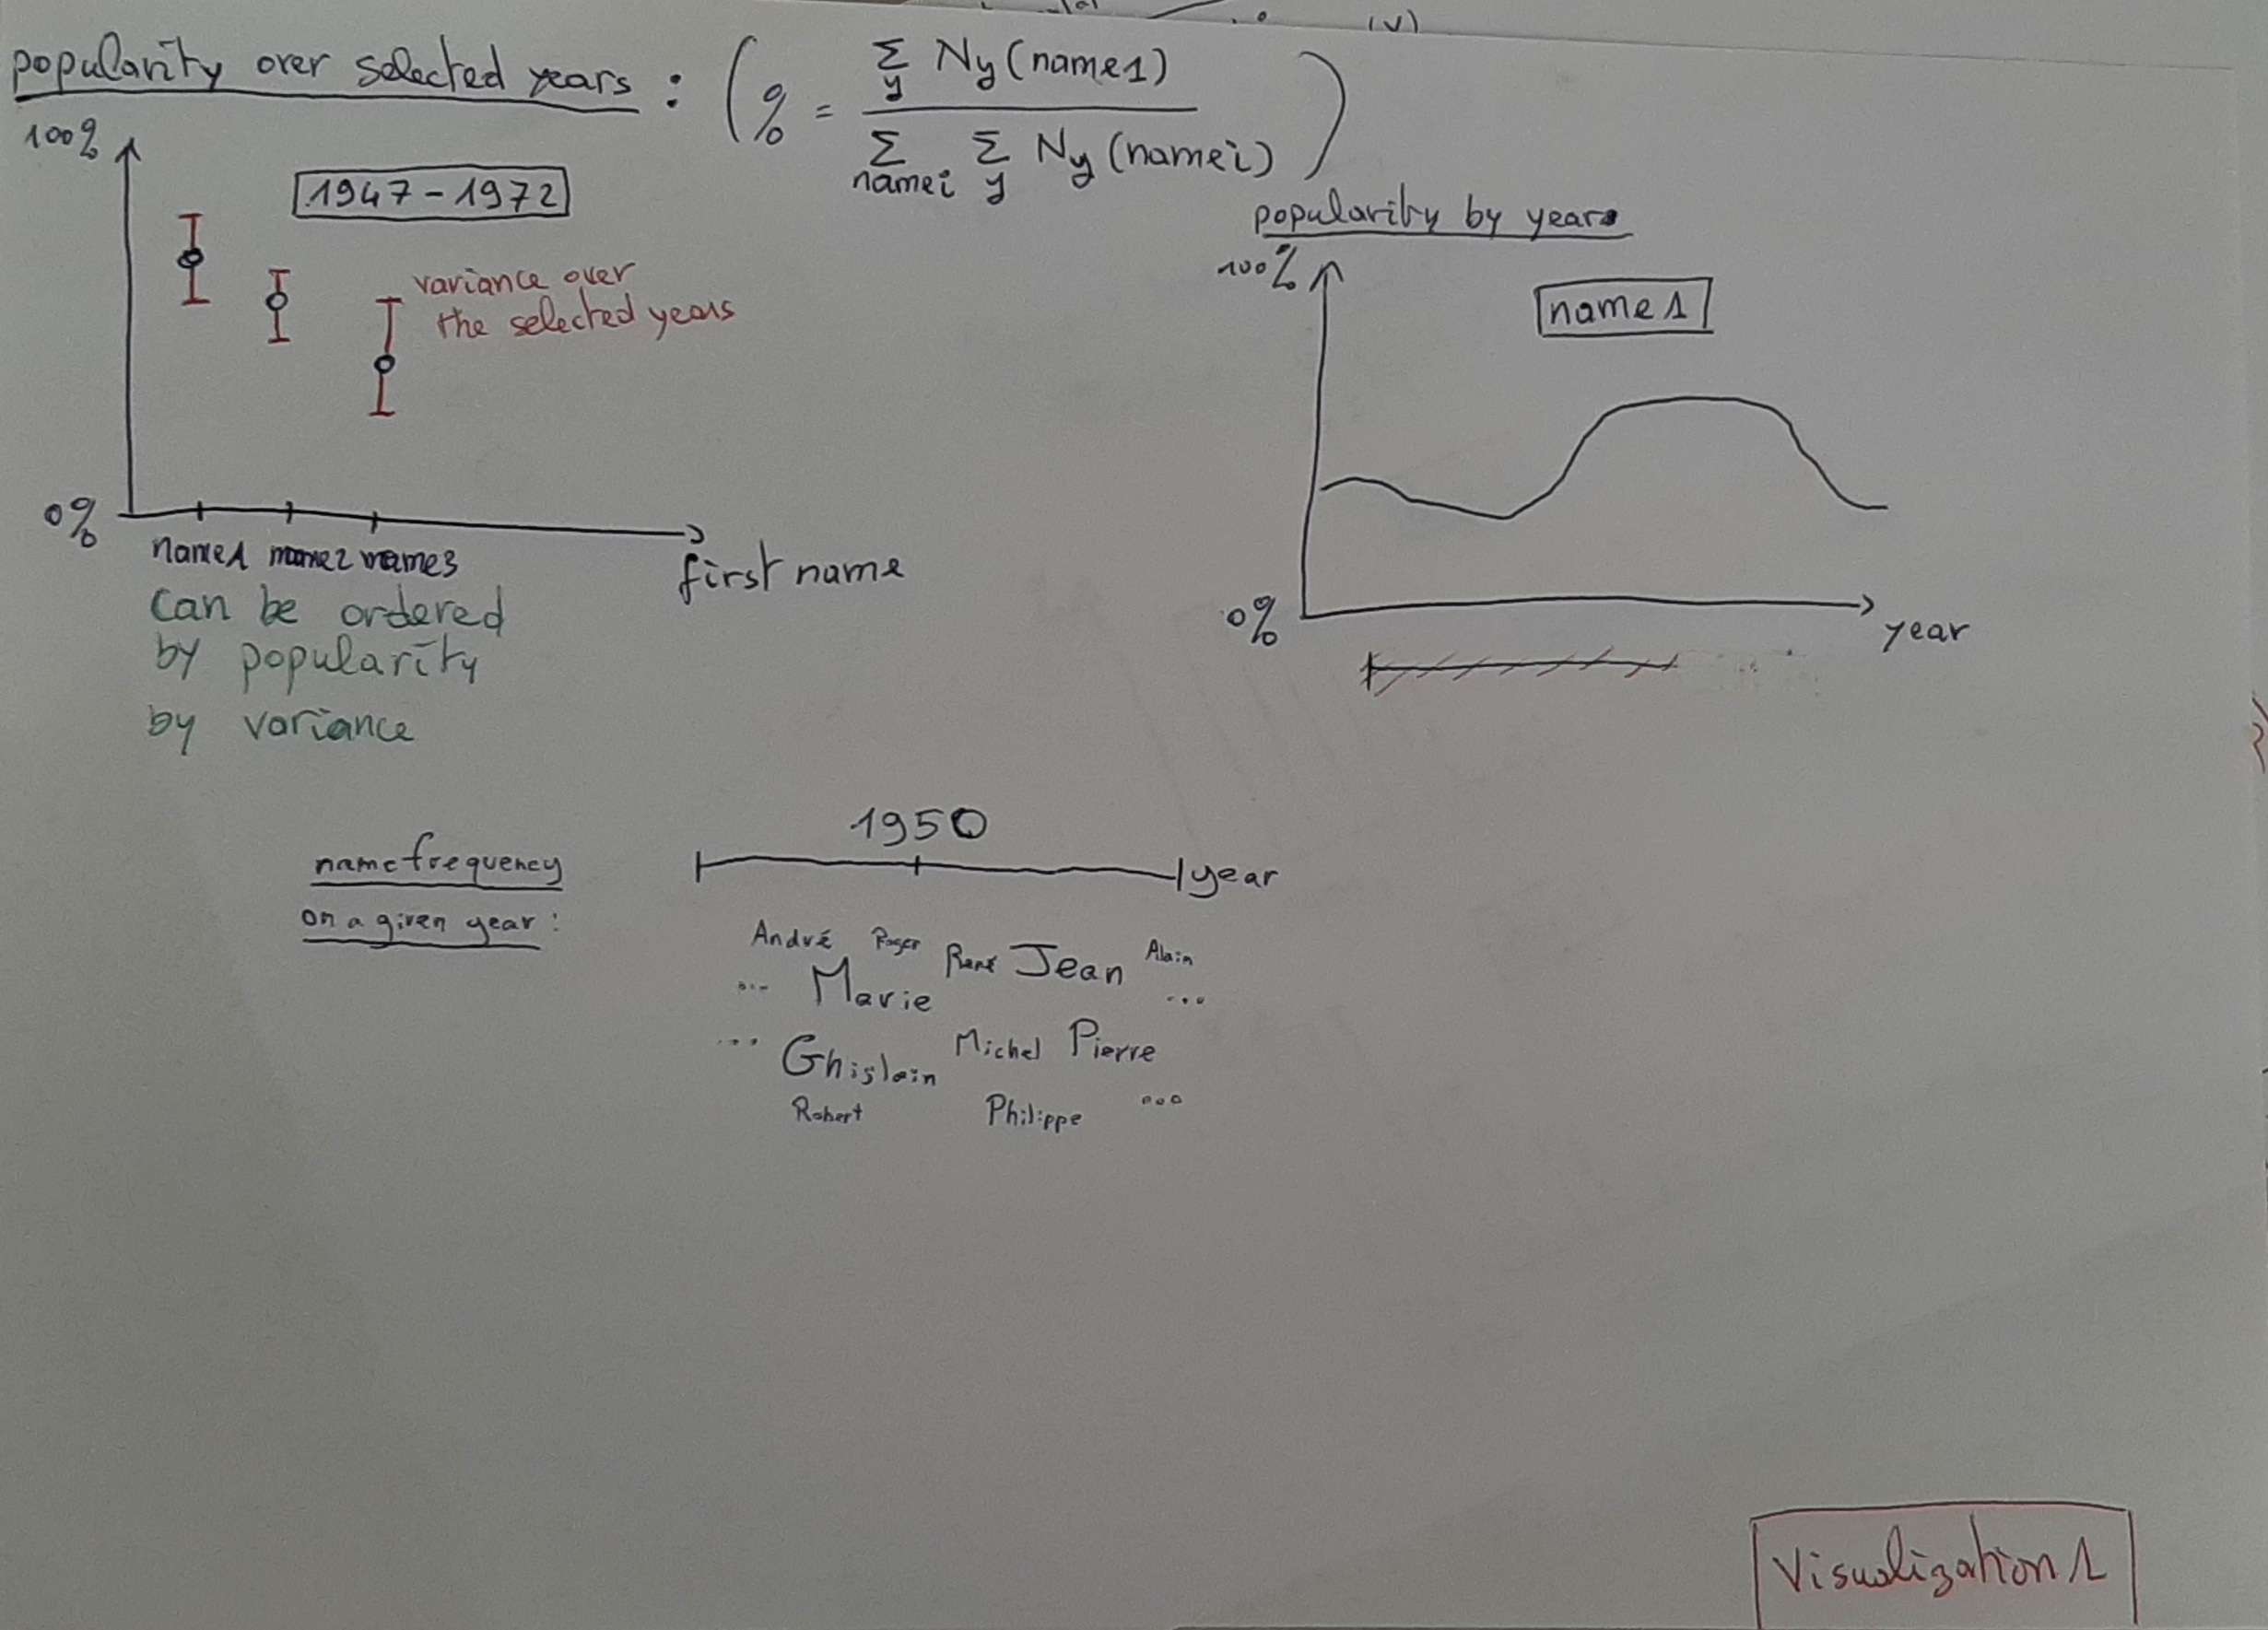 (v)
popularity over selected years : ( % = Σ y Ny (name1)
Σ namei Σ y Ny (namei) )
100%
1947-1972
variance over
the selected years
0%
name1 name2 name3
first name
can be ordered
by popularity
by variance
popularity by years
100%
name1
0%
year
name frequency
on a given year :
1950
year
André Roger René Jean Alain
... Marie ...
... Ghislain Michel Pierre
Robert Philippe ...
Visualization 1